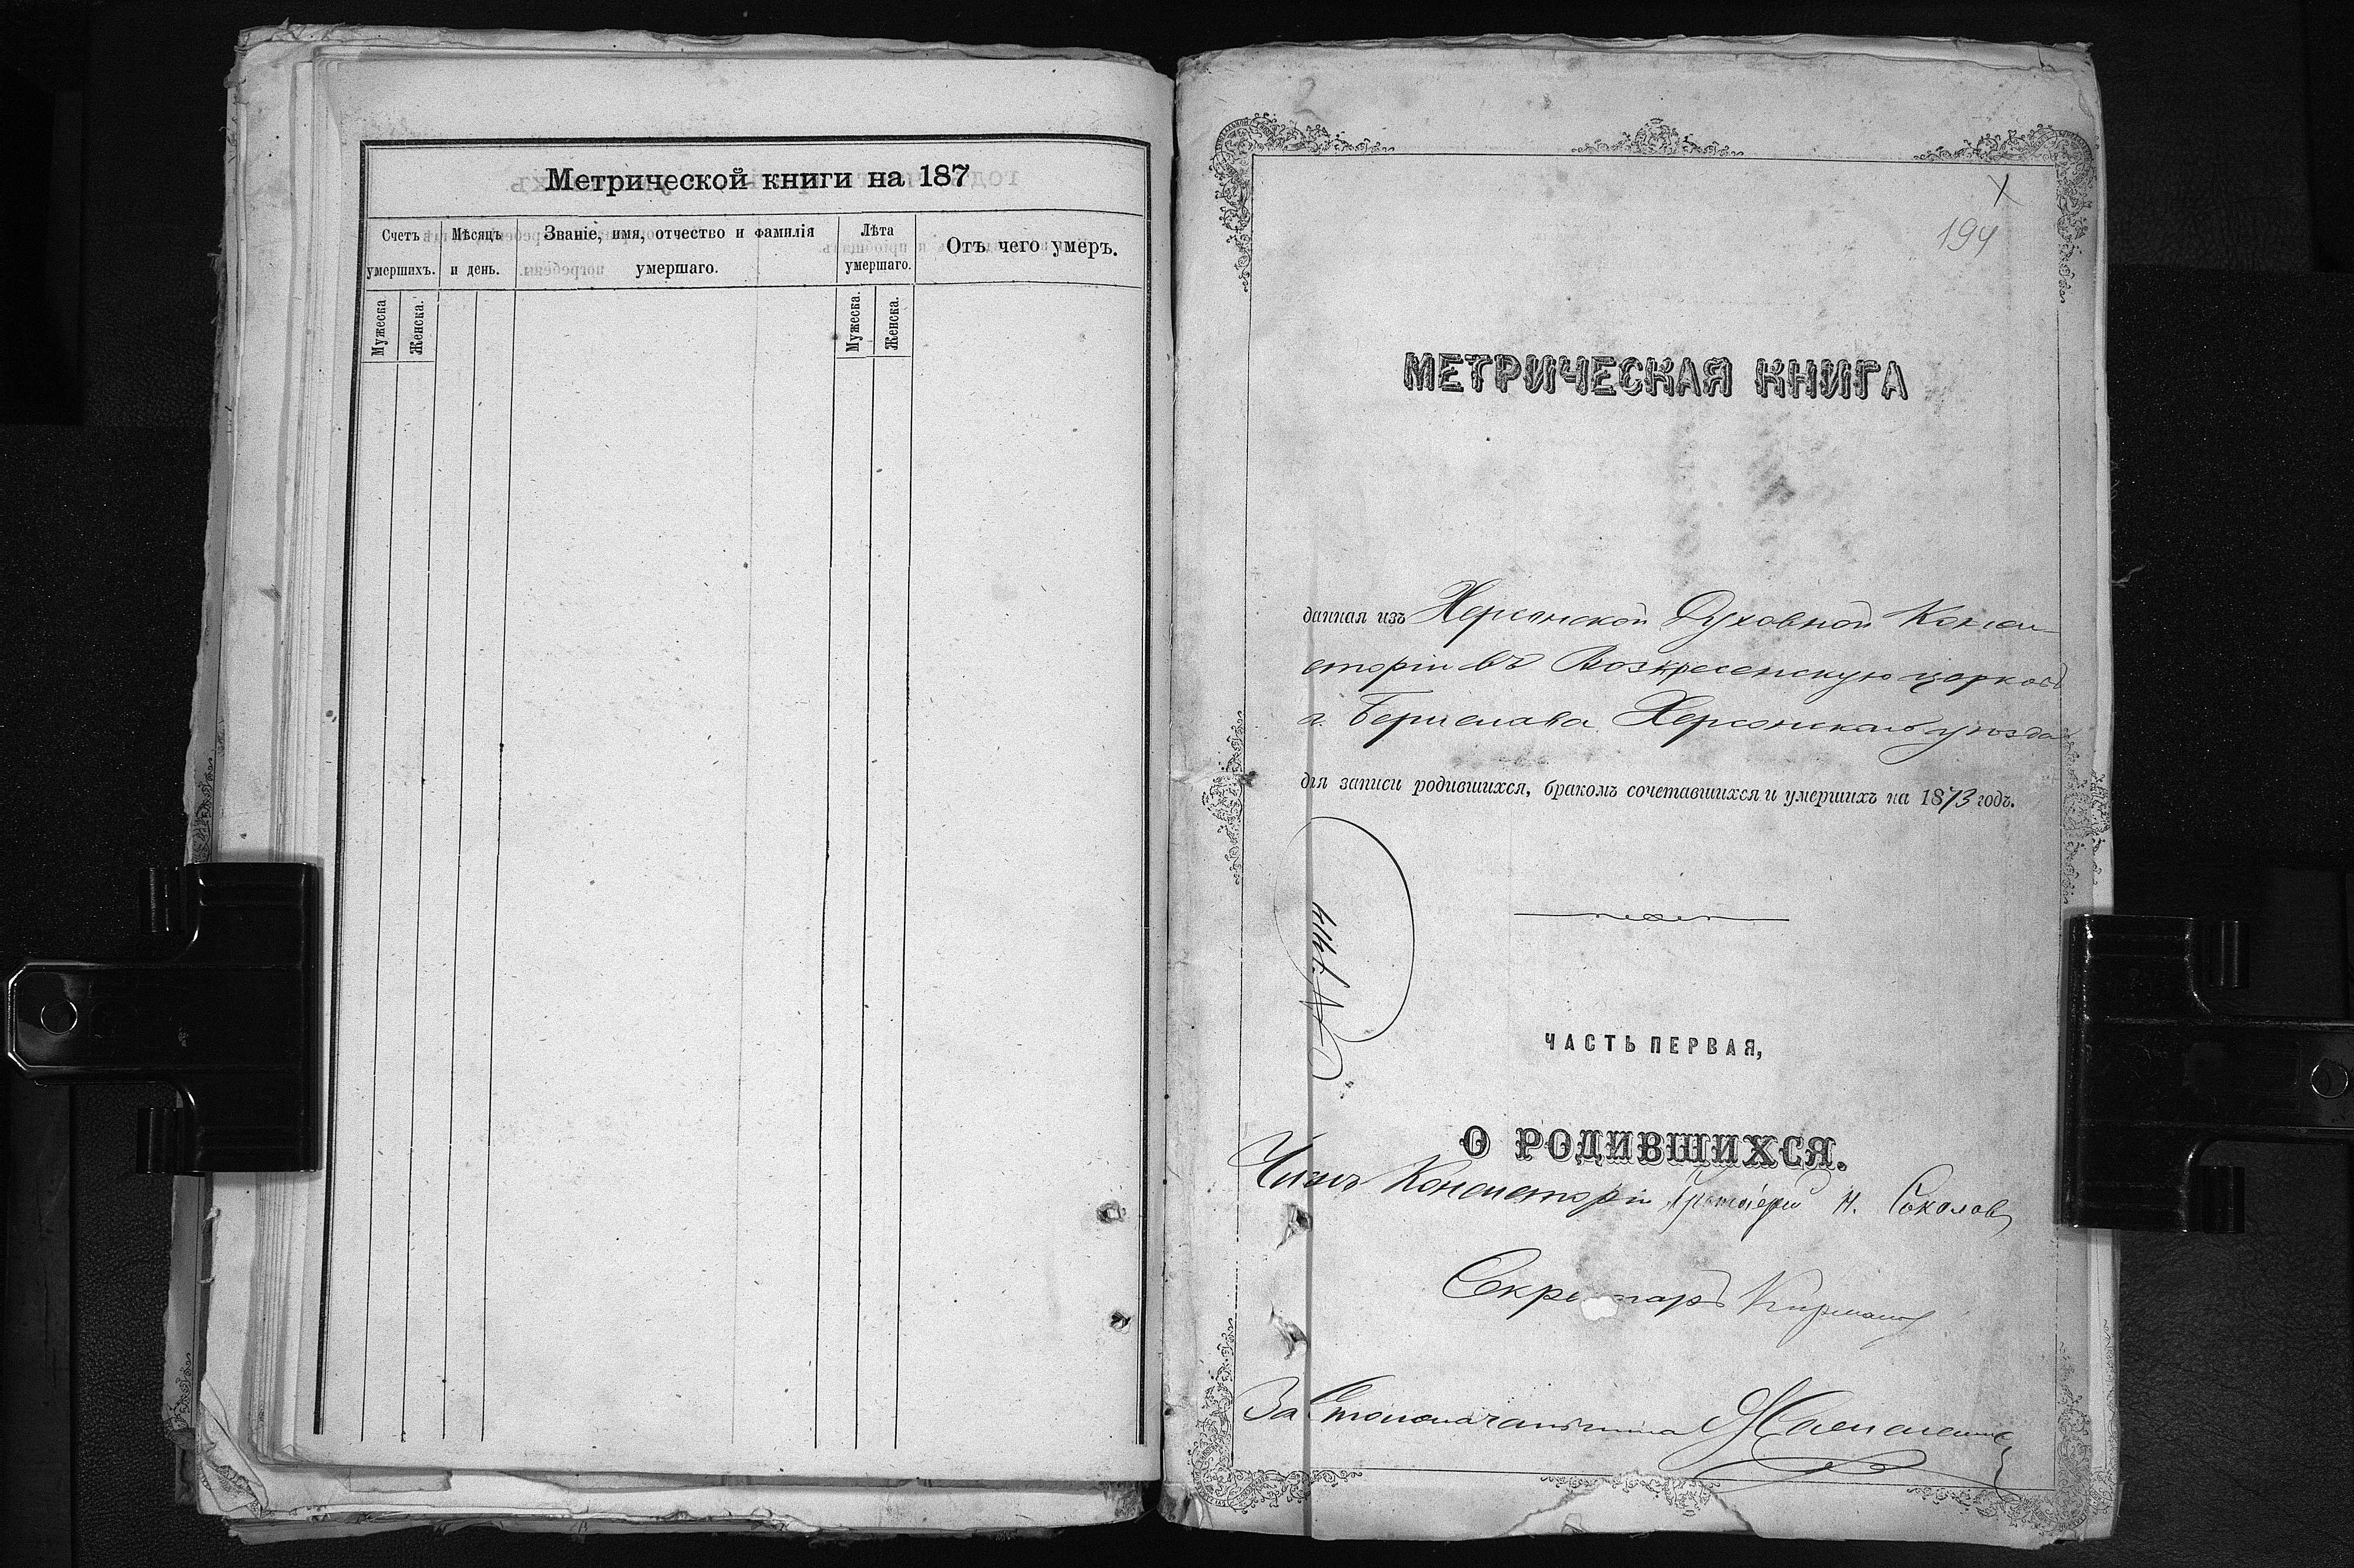 Метрической книги на 187
Счетъ умершихъ.
Мѣсяцъ и день.
Званіе, имя, отчество и фамилія
умершаго.
Лѣта умершаго.
Отъ чего умеръ.
Мужеска
Женска.
Мужеска.
Женска.
194
МЕТРИЧЕСКАЯ КНИГА
данная изъ Херсонской Духовной Конси-
сторіи въ Воскресенскую церковь
г. Берислава Херсонскаго уѣзда
для записи родившихся, бракомъ сочетавшихся и умершихъ на 1873 годъ.
ЧАСТЬ ПЕРВАЯ,
О РОДИВШИХСЯ.
Членъ Консисторіи Протоіерей Н. Соколовъ
Секретарь
За Столоначальника